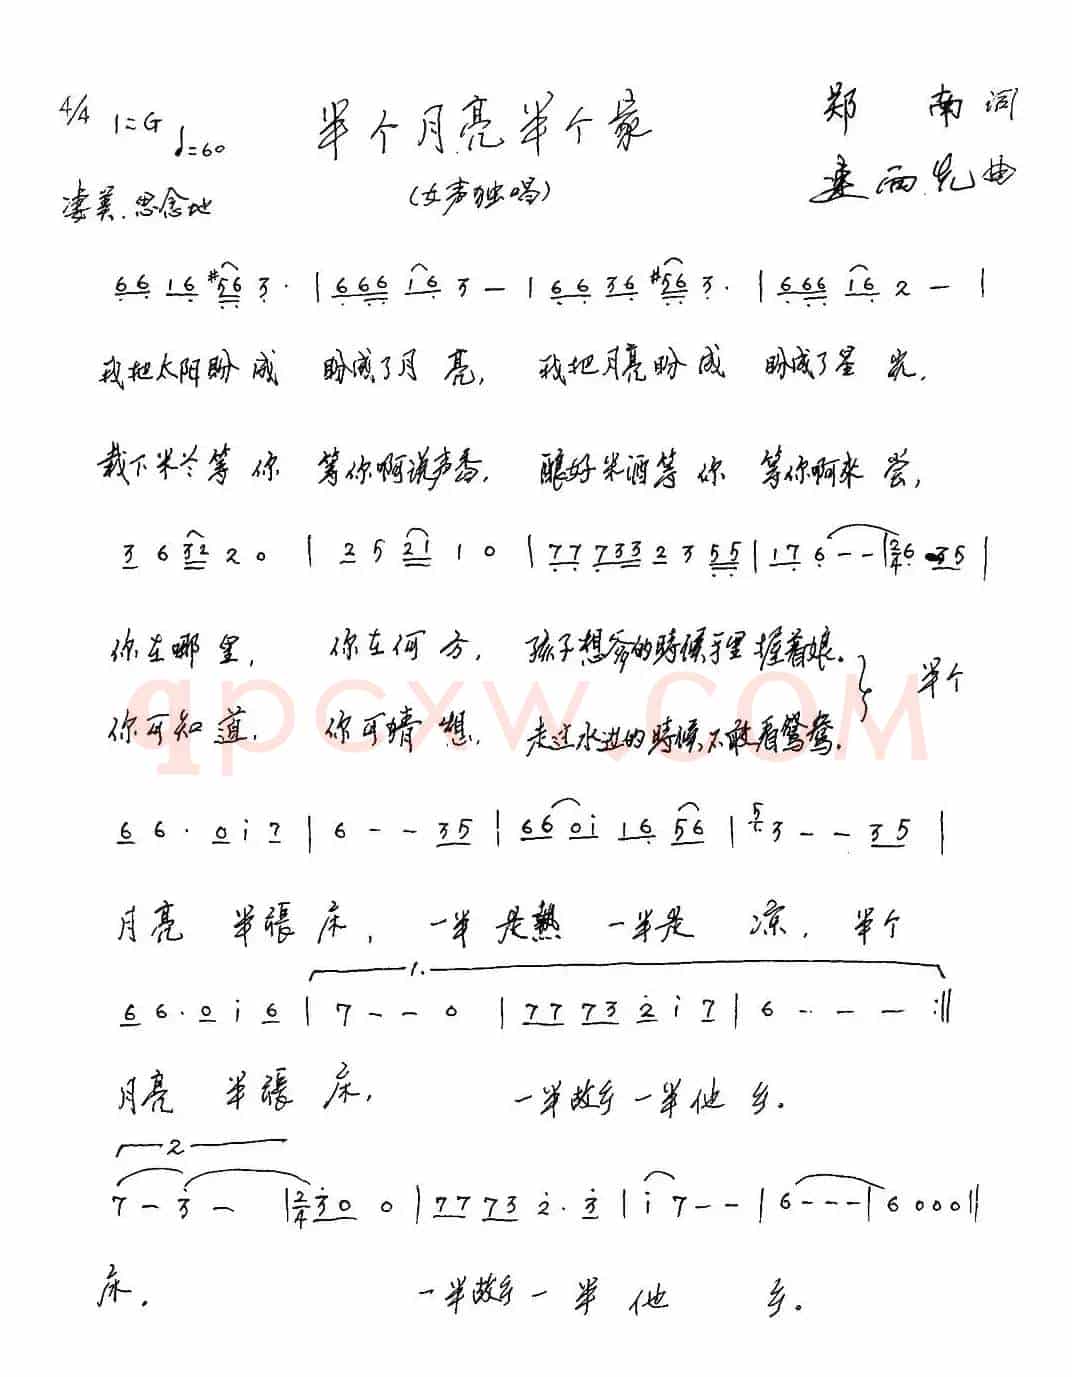 4/4 1=G ♩=60 半个月亮半个家 郑南词
凄美.思念地 (女声独唱) 雨先曲
6 6 1 6 #5 6 3 · | 6 6 6 1 6 3 — | 6 6 3 6 #5 6 3 · | 6 6 6 1 6 2 — |
我把太阳盼成 盼成了月亮, 我把月亮盼成 盼成了星光,
栽下米兰等你 等你啊说声香, 酿好米酒等你 等你啊来尝,
3 6 3 2 2 0 | 2 5 2 1 1 0 | 7 7 7 3 3 2 3 5 5 | 1 7 6 - - | 2/4 6 3 5 |
你在哪里, 你在何方, 孩子想爹的時候手里握着娘。
半个
你可知道, 你可猜想, 走过水边的時候不敢看鸳鸯.
qpcxw.com
6 6 · 0 i 7 | 6 - - 3 5 | 6 6 0 i 1 6 5 6 | 5 3 - - 3 5 |
月亮 半張床, 一半是熱 一半是凉, 半个
1.
6 6 · 0 i 6 | 7 - - 0 | 7 7 7 3 2 i 7 | 6 - - - :||
月亮 半張床, 一半故乡一半他乡.
2
7 — 3 — | 2/4 3 0 0 | 7 7 7 3 2 · 3 | i 7 - - | 6 - - - | 6 0 0 0 ||
床. 一半故乡一半他乡.